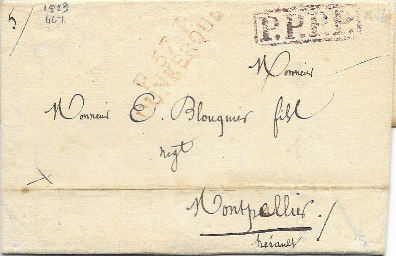 5/
1823
P. 57. P.
DUNKERQUE
P.P.P.P.
Monsieur
Monsieur C. Blouquier fils
negt
Montpellier
hérault